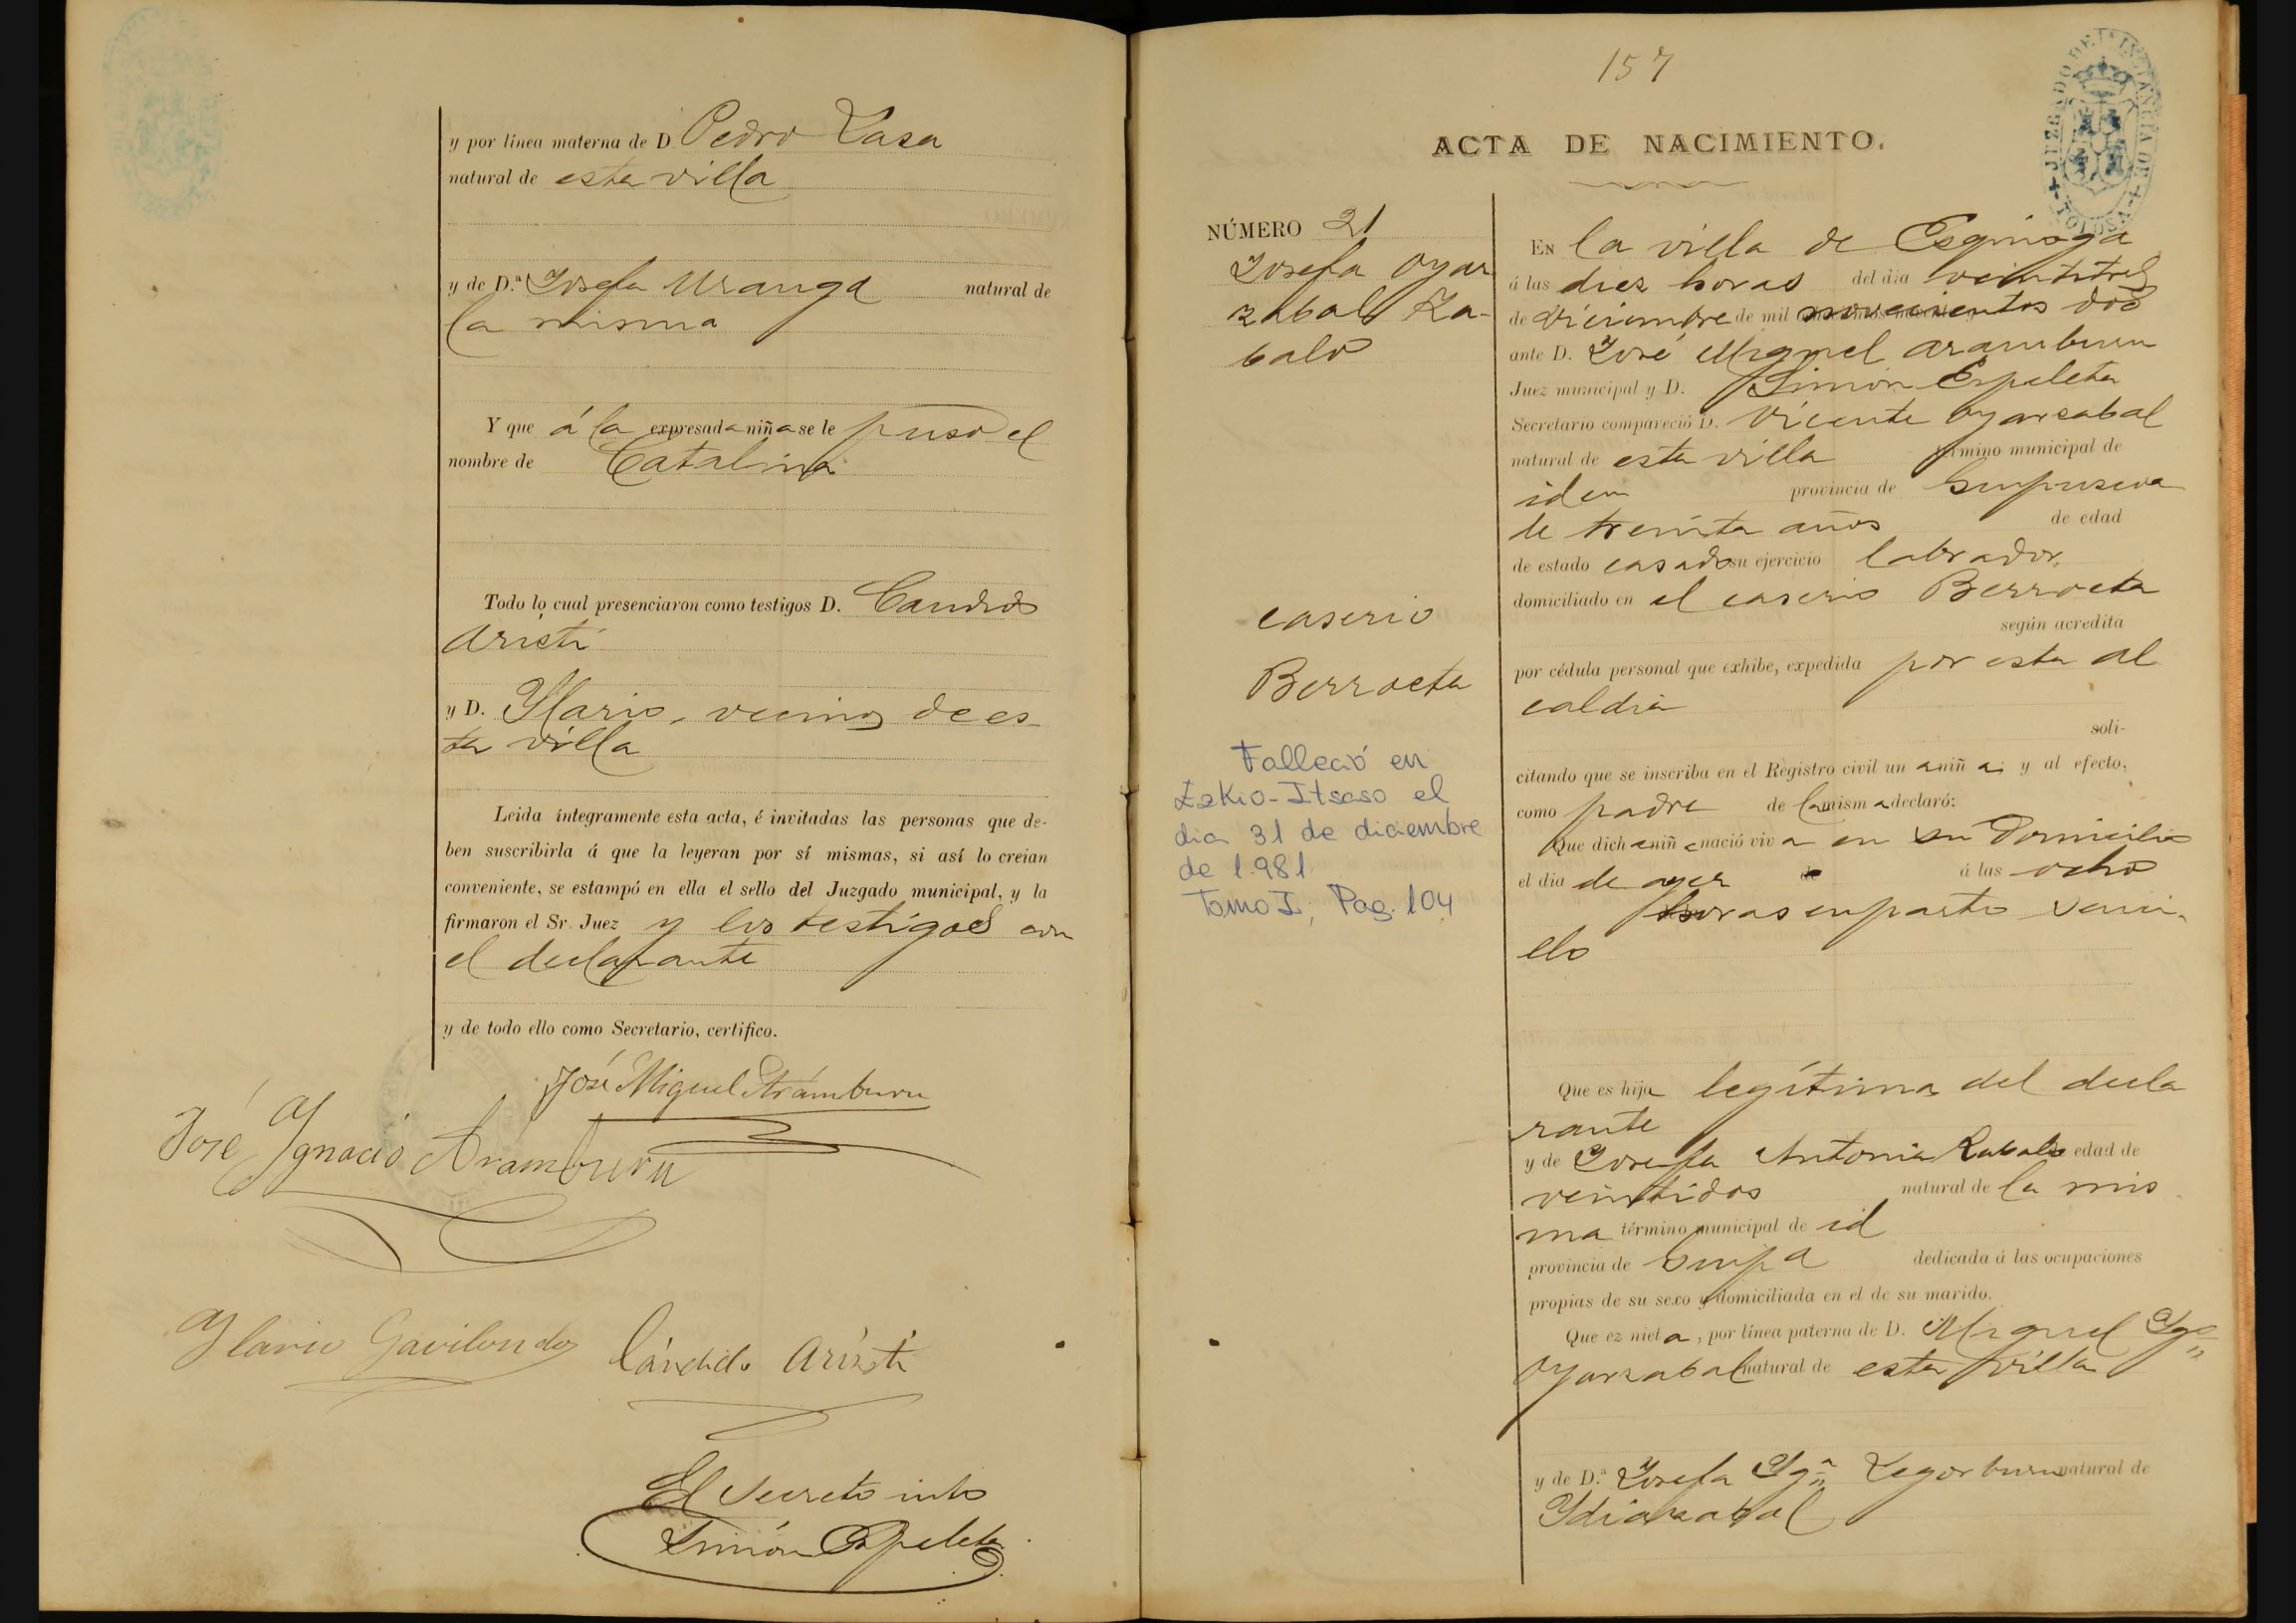 y por línea materna de D. Pedro Lasa
natural de esta villa
y de D.ª Josefa Uranga natural de
la misma
Y que á la expresada niña se le puso el
nombre de Catalina
Todo lo cual presenciaron como testigos D. Candido
Aristi
y D. Ylario, vecinos de es-
ta villa
Leida íntegramente esta acta, é invitadas las personas que de-
ben suscribirla á que la leyeran por sí mismas, si así lo creian
conveniente, se estampó en ella el sello del Juzgado municipal, y la
firmaron el Sr. Juez y los testigos con
el declarante
y de todo ello como Secretario, certifico.
José Miguel Aramburu
José Ygnacio Aramburu
Ylario Gavilondo Cándido Aristi
El Secreto into
Simón Ezpeleta
157
JUZGADO DE 1ª INSTANCIA DE TOLOSA
ACTA DE NACIMIENTO.
NÚMERO 21
Josefa Oyar
zabal Za-
balo
caserio
Berroeta
Falleció en
Ezkio-Itsaso el
dia 31 de diciembre
de 1.981
Tomo I, Pag. 104
En la villa de Esquioga
á las diez horas del dia veintitres
de diciembre de mil novecientos dos
ante D. José Miguel Aramburu
Juez municipal y D. Simón Ezpeleta
Secretario compareció D. Vicente Oyarzabal
natural de esta villa término municipal de
idem provincia de Guipuzcoa
de treinta años de edad
de estado casado su ejercicio labrador
domiciliado en el caserio Berroeta
según acredita
por cédula personal que exhibe, expedida por esta al
caldia
soli-
citando que se inscriba en el Registro civil un a niñ a y al efecto,
como padre de la mism a declaró:
Que dich a niñ a nació viv a en su domicilio
el dia de ayer de á las ocho
horas en parto senci-
llo
Que es hija legítima del decla
rante
y de Josefa Antonia Zabalo edad de
veintidos natural de la mis
ma término municipal de id
provincia de Guipa dedicada á las ocupaciones
propias de su sexo y domiciliada en el de su marido.
Que ez nieta, por línea paterna de D. Miguel Ygo
Oyarzabal natural de esta villa
y de D.ª Josefa Yga Legorburu natural de
Ydiazabal